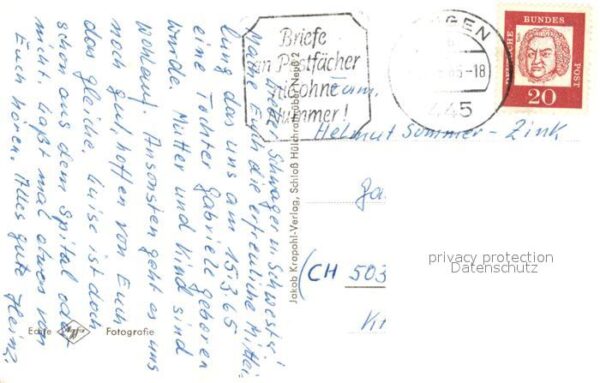 Lieber Schwager u. Schwester!
Mache Euch die erfreuliche Mittei-
lung das uns am 15.3.65
eine Tochter Gabriele geboren
wurde. Mutter und Kind sind
wohlauf. Ansonsten geht es uns
noch gut, hoffen von Euch
das gleiche. Luise ist doch
schon aus dem Spital oder
nicht. Laßt mal etwas von
Euch hören. Alles gute Heinz.
Echte Agfa Fotografie
Jakob Krapohl-Verlag, Schloß Hülchrath über Neuß 2
Briefe
an Postfächer
nie ohne
Nummer!
GEN
-18
445
DEUTSCHE BUNDESPOST
20
Fam.
Helmut Sommer-Zink
(CH 503
privacy protection
Datenschutz